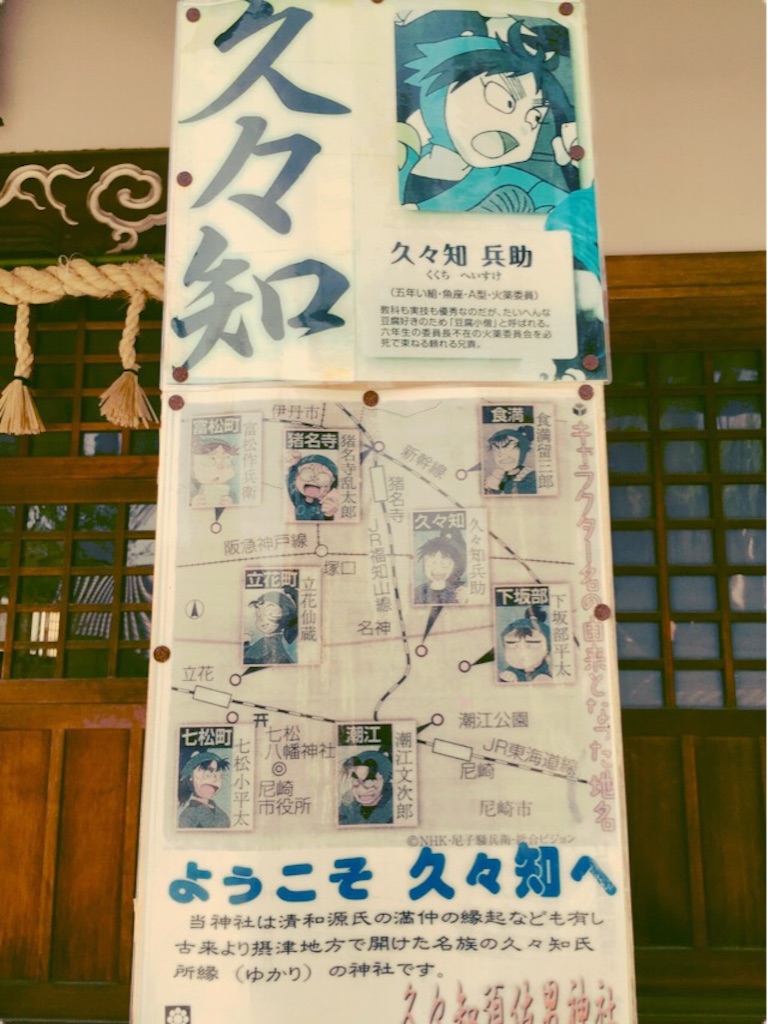 久々知
久々知 兵助
くくち へいすけ
(五年い組・魚座・A型・火薬委員)
教科も実技も優秀なのだが、たいへんな
豆腐好きのため「豆腐小僧」と呼ばれる。
六年生の委員長不在の火薬委員会を必
死で束ねる頼れる兄貴。
キャラクター名の由来となった地名
伊丹市
富松町
富松作兵衛
猪名寺
猪名寺乱太郎
食満
食満留三郎
新幹線
猪名寺
久々知
久々知兵助
阪急神戸線
塚口
JR福知山線
立花町
立花仙蔵
名神
下坂部
下坂部平太
立花
七松町
七松小平太
七松
八幡神社
尼崎
市役所
潮江
潮江文次郎
潮江公園
JR東海道線
尼崎
尼崎市
©NHK・尼子騒兵衛・総合ビジョン
ようこそ 久々知へ
当神社は清和源氏の満仲の縁起なども有し
古来より摂津地方で開けた名族の久々知氏
所縁（ゆかり）の神社です。
久々知須佐男神社